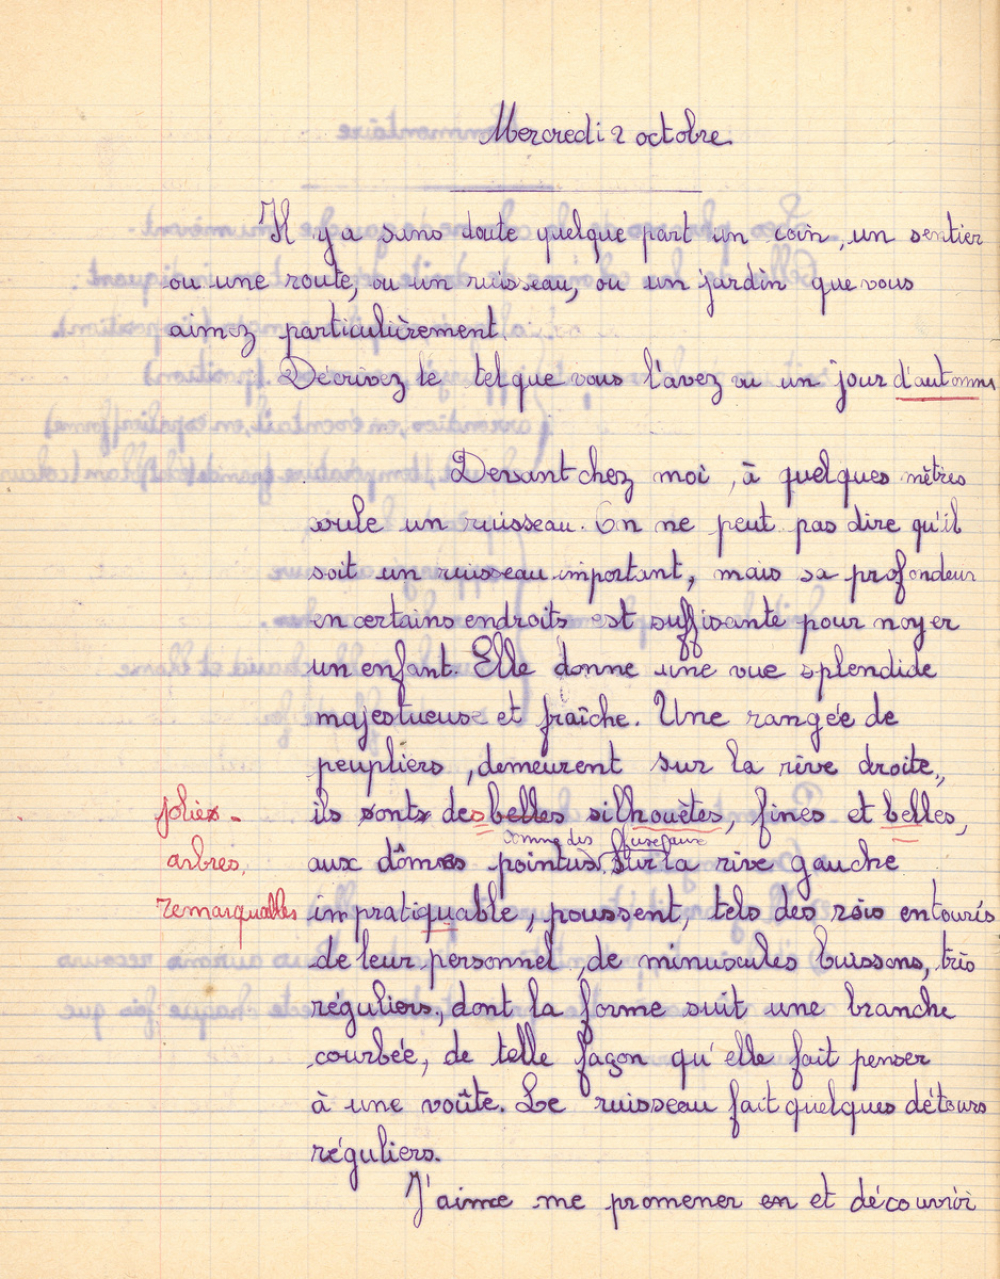 Mercredi 2 octobre.
Il y a sans doute quelque part un coin, un sentier
ou une route, ou un ruisseau, ou un jardin que vous
aimez particulièrement.
Décrivez le tel que vous l'avez vu un jour d'automne
Devant chez moi, à quelques mètres
coule un ruisseau. On ne peut pas dire qu'il
soit un ruisseau important, mais sa profondeur
en certains endroits est suffisante pour noyer
un enfant. Elle donne une vue splendide
majestueuse et fraîche. Une rangée de
peupliers, demeurent sur la rive droite,
jolies ils sont des belles silhouètes, fines et belles,
comme des
arbres, aux dômes pointus. Sur la rive gauche
remarquables impratiquable, poussent, tels des rois entourés
de leur personnel, de minuscules buissons, très
réguliers, dont la forme suit une branche
courbée, de telle façon qu'elle fait penser
à une voûte. Le ruisseau fait quelques détours
réguliers.
J'aime me promener en et découvrir